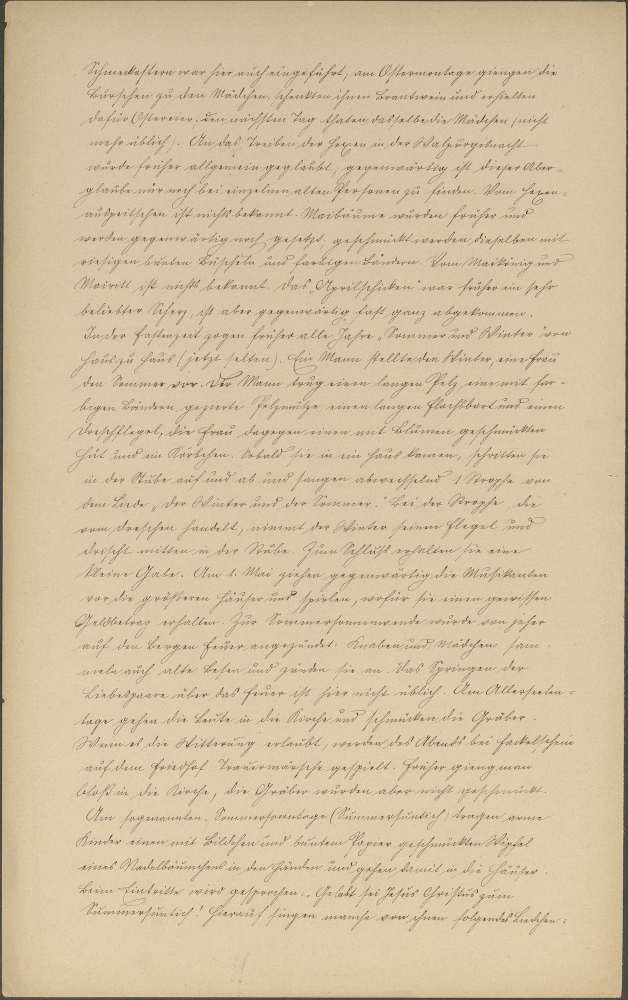 Schmeckostern war hier auch eingeführt, am Ostermontage giengen die
Burschen zu den Mädchen, schenkten ihnen Brantwein und erhielten
dafür Ostereier. Den nächsten Tag thaten dasselbe die Mädchen (nicht
mehr üblich). An das Treiben der Hexen in der Walpurgisnacht
wurde früher allgemein geglaubt, gegenwärtig ist dieser Aber-
glaube nur noch bei einzelnen alten Personen zu finden. Vom Hexen-
auspeitschen ist nichts bekannt. Maibäume wurden früher und
werden gegenwärtig noch gesetzt, geschmückt werden dieselben mit
riesigen bunten Büscheln und farbigen Bändern. Vom Maikönig und
Mairitt ist nichts bekannt. Das „Aprilschicken" war früher ein sehr
beliebter Scherz, ist aber gegenwärtig fast ganz abgekommen.
In der Fastenzeit zogen früher alle Jahre „Sommer und Winter" von
Haus zu Haus (jetzt selten). Ein Mann stellte den Winter, eine Frau
den Sommer vor. Der Mann trug einen langen Pelz, eine mit far-
bigen Bändern gezierte Pelzmütze einen langen Flachsbart und einen
Dreschflegel, die Frau dagegen einen mit Blumen geschmückten
Hut und ein Körbchen. Sobald sie in ein Haus kamen, schritten sie
in der Stube auf und ab und sangen abwechselnd 1 Strophe von
dem Liede „Der Winter und der Sommer." Bei der Strophe, die
vom Dreschen handelt, nimmt der Winter seinen Flegel und
drischt mitten in der Stube. Zum Schluß erhalten sie eine
kleine Gabe. Am 1. Mai ziehen gegenwärtig die Musikanten
vor die größeren Häuser und spielen, wofür sie einen gewissen
Geldbetrag erhalten. Zur Sommersonnenwende wurde von jeher
auf den Bergen Feuer angezündet. Knaben und Mädchen sam-
meln auch alte Besen und zünden sie an. Das Springen der
Liebespaare über das Feuer ist hier nicht üblich. Am Allerseelen-
tage gehen die Leute in die Kirche und schmücken die Gräber.
Wenn es die Witterung erlaubt, werden des Abends bei Fackelschein
auf dem Friedhof Trauermärsche gespielt. Früher gieng man
bloß in die Kirche, die Gräber wurden aber nicht geschmückt.
Am sogenannten Sommersonntage (Summersuntich) tragen arme
Kinder einen mit Bildchen und buntem Papier geschmückten Wipfel
eines Nadelbäumchens in den Händen und gehen damit in die Häuser.
Beim Eintritte wird gesprochen: „Gelobt sei Jesus Christus zum
Summersuntich!" Hierauf singen manche von ihnen folgendes Liedchen: